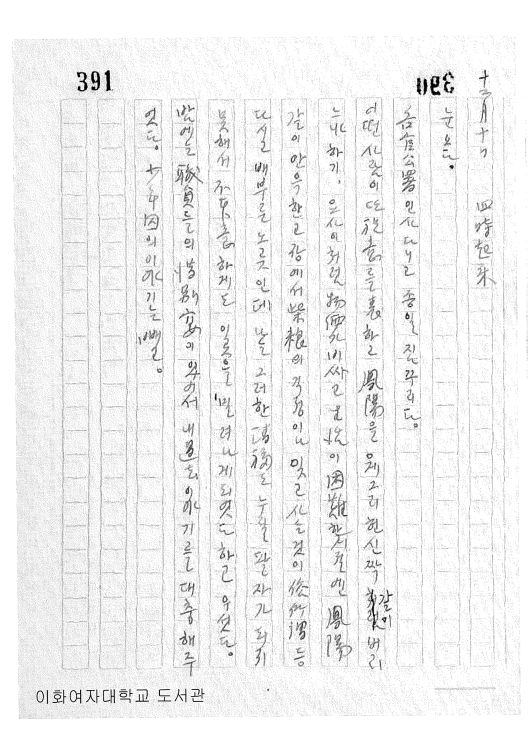 391
390
十二月十一日 四時起床
눈 오다。
各官公署 인사 다니고 종일 짐꾸리다。
어떤 사람이 또 祝意를 表하고 鳳陽을 웨 그리 헌신짝 같이 버리
느냐 하기、 요사이처럼 物價 비싸고 困難한 때엔 鳳陽
같이 안윽한 고장에서 柴粮의 걱정이나 잊고 사는 것이 俗所謂 등
다실 배부를 노릇인데 날 그러한 福도 누릴 팔자가 되지
못해서 不本意하게도 이곳을 밀려나게 되엿다 하고 우섯다。
밤에는 職員들의 惜別宴이 있어서 이야기를 대충 해주
엇다。 少年囚의 이야기는 빼고。
이화여자대학교 도서관